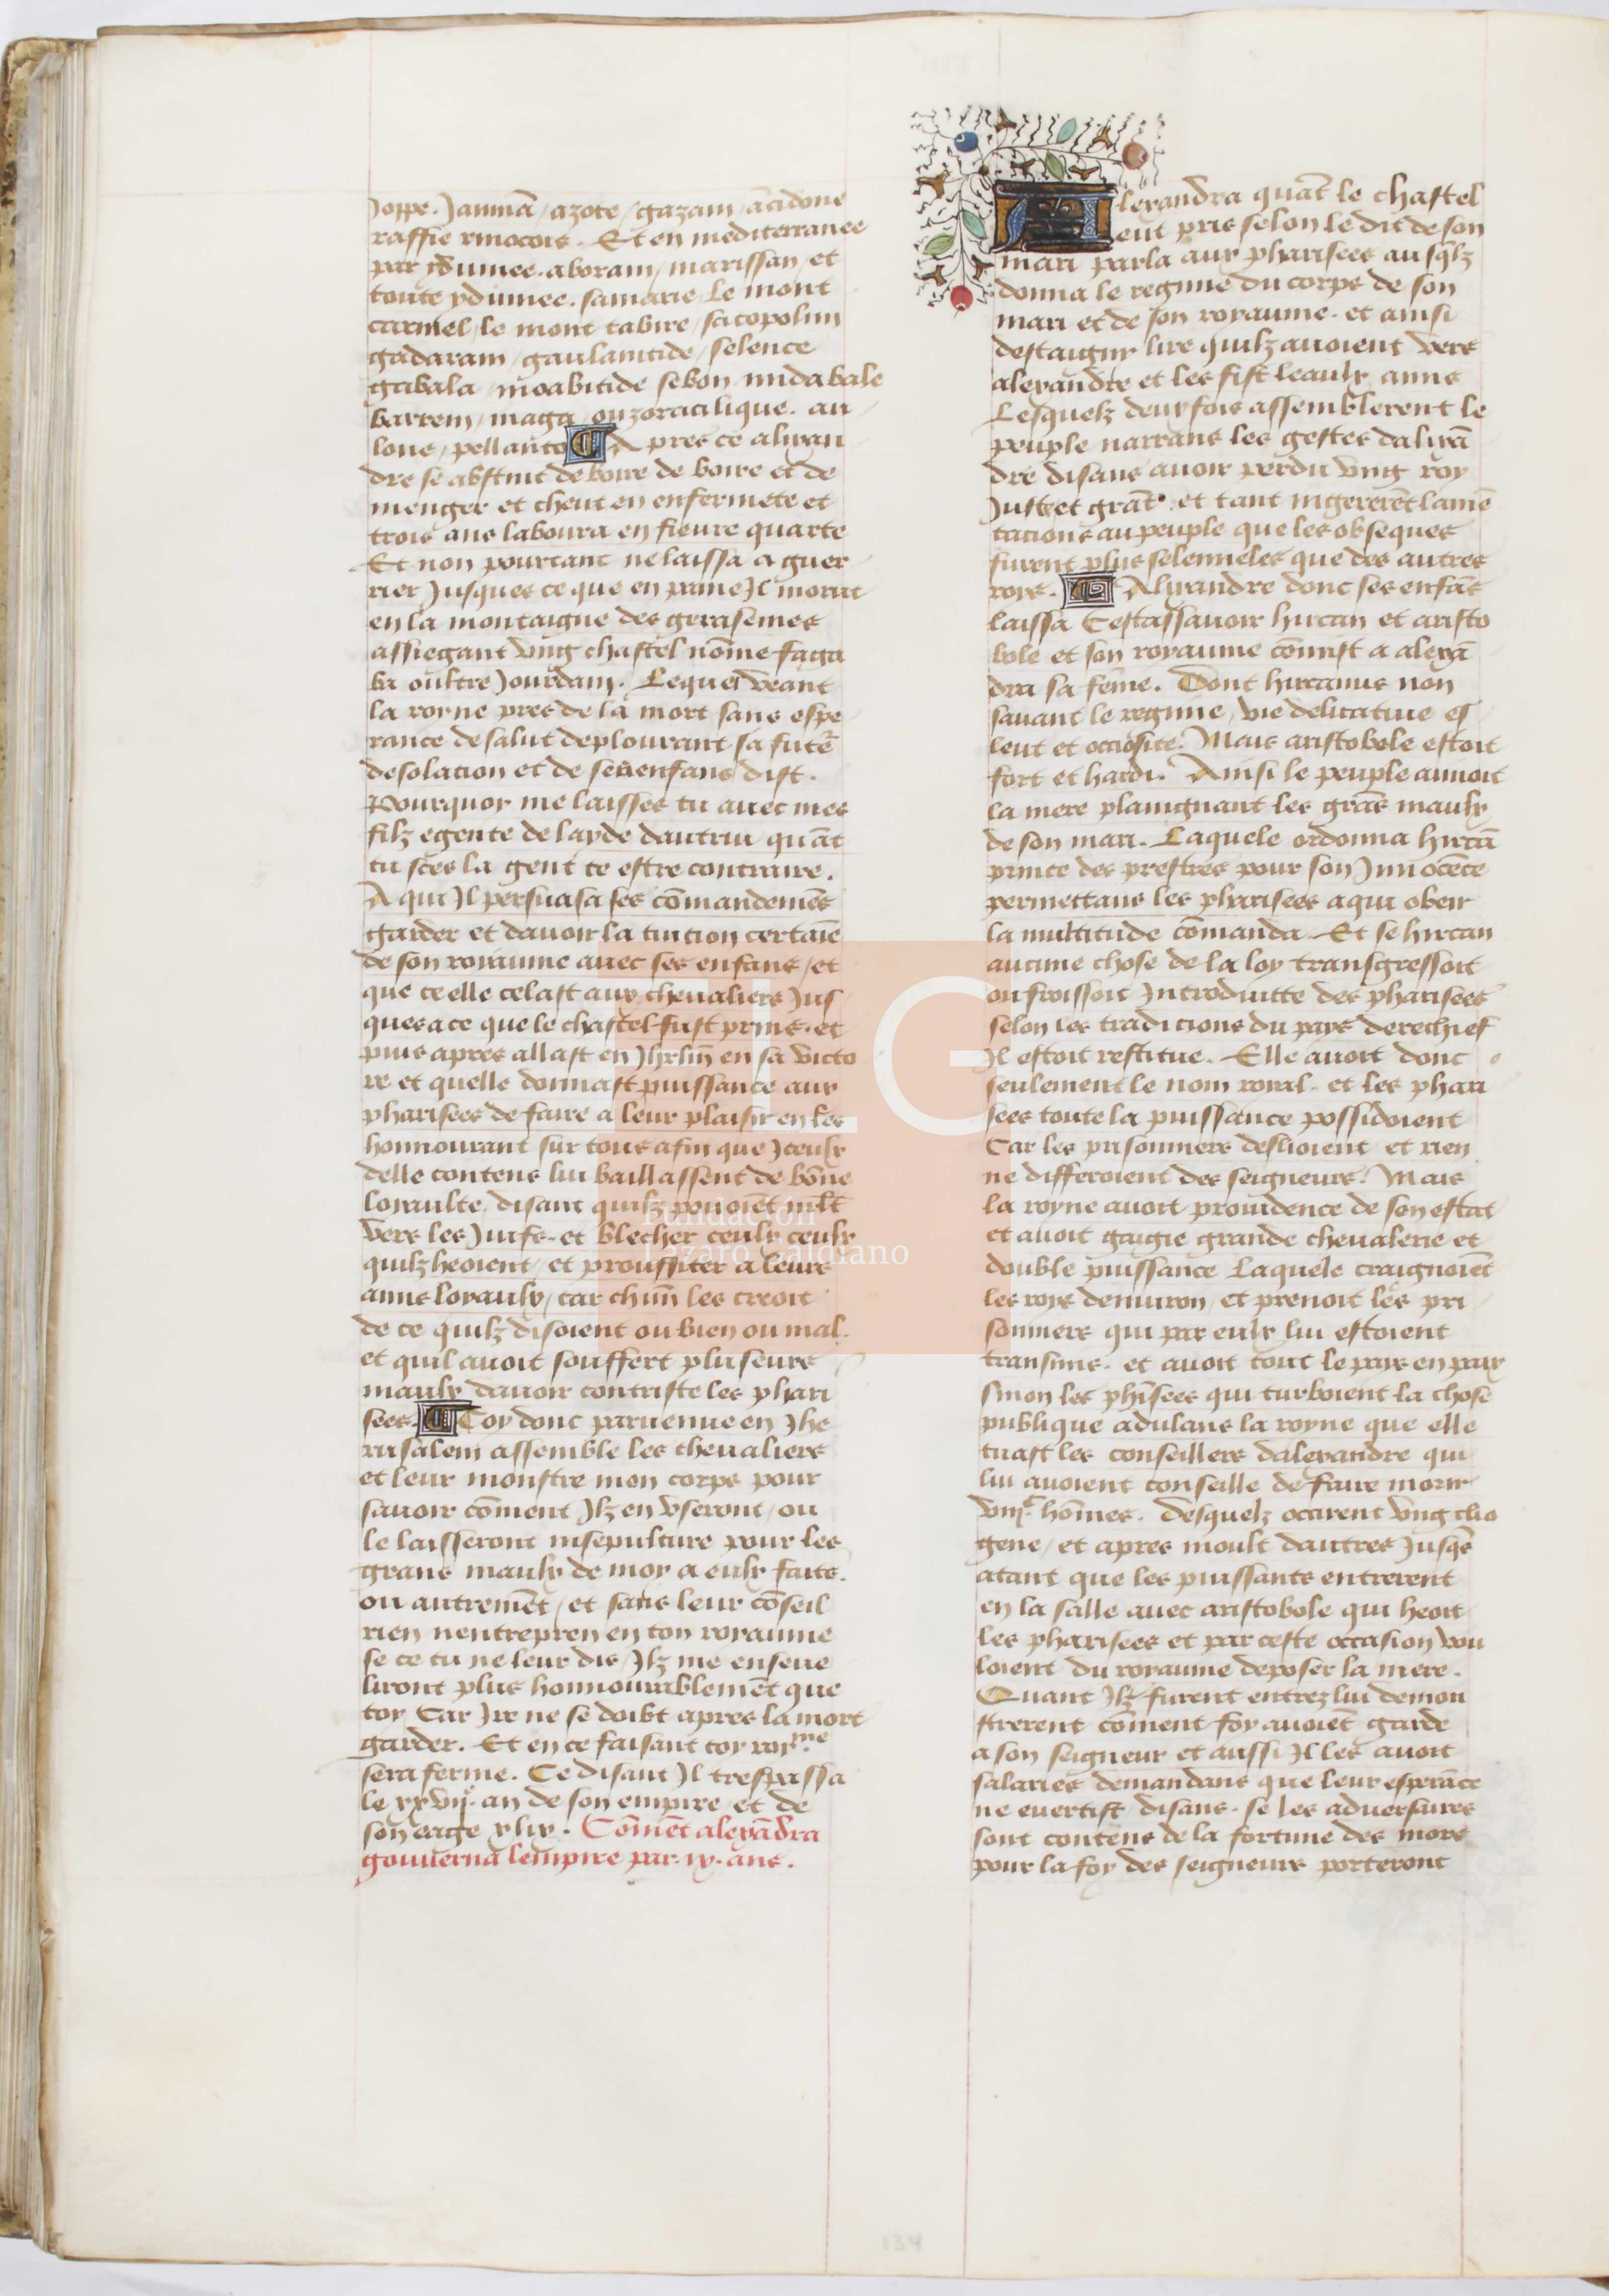 Joppe. Jannã / azote / gazam / ãcidone
raffie rinocois. Et en mediterranee
par ydumee. aboram / marissan / et
toute ydumee. samarie / le mont
carmel / le mont tabire / scitopolim
gadaram / gaulanitide / selence
gabala / moabitide sebon nndabale
bartem / maga ou zoracilique. au
lone / pellanto A pres ce alixan
dre se abstint de boire de boire et de
menger et cheut en enfermete et
trois ans laboura en fieure quarte
Et non pourtant ne laissa a guer
rier Jusques ce que en paine Jl morut
en la montaigne des gerasemes
assiegant vng chastel nõme faga
ba oultre Jourdam. Lequel veant
la royne pres de la mort sans espe
rance de salut deplourant sa futẽ
desolacion et de ses enfans dist.
Pourquoy me laisses tu auec mes
filz egente de layde dautrui quãt
tu sces la gent te estre contraire.
A qui Jl persuasa ses cõmandemẽs
garder et dauoir la tuicion certaĩe
de son royaume auec ses enfans / et
que ce elle celast aux cheualiers Jus
ques a ce que le chastel fust prins. et
puis apres allast en Jhrlm̃ en sa victo
re et quelle donnast puissance aux
pharisees de faire a leur plaisir en les
honnourant sur tous afin que Jceulx
delle contens lui baillassent de bõne
loyaulte. disant quilz pouoiẽt ml̃t
vers les Juifs. et blecher ceulx ceulx
quilz heoient / et prouffiter a leurs
amis loyaulx / car chũn les creoit
de ce quilz disoient ou bien ou mal.
et quil auoit souffert pluseurs
maulx dauoir contriste les phari
sees. Toy donc paruenue en Jhe
rusalem assemble les cheualiers
et leur monstre mon corps pour
sauoir cõment Jlz en vseront / ou
le laisseront insepulture pour les
grans maulx de moy a eulx fais.
ou autremẽt / et sans leur cõseil
rien nentrepren en ton royaume
se ce tu ne leur dis / Jlz me enseue
liront plus honnourablemẽt que
toy Car Jre ne se doibt apres la mort
garder. Et en ce faisant toy royme
sera ferme. Ce disant Jl trespassa
le xxvij.e an de son empire et de
son eage xlix. Cõmẽt alexãdra
gouuerna lempire par. ix. ans.
Alexandra quãt le chastel
eut pris selon le dit de son
mari parla aux pharisees ausq̃lz
donna le regime du corps de son
mari et de son royaume. et ainsi
destaignr lire quilz auoient vers
alexandre et les fist leaulx amis
Lesquelz deux fois assemblerent le
peuple narrans les gestes dalixã
dre disans auoir perdu vng roy
Juste et grãt. et tant ingererẽt lamẽ
tacions au peuple que les obseques
furent plus selennieles que des autres
roys. Alixandre donc ses enfãs
laissa Cestassauoir hircan et aristo
bole et son royaume cõmist a alexã
dra sa fẽme. Dont hircanus non
sauant le regime / vie delicatiue es
leut et occiosite. Mais aristobole estoit
fort et hardi. Ainsi le peuple aimoit
la mere plaingnant les grãs maulx
de son mari. Laquele ordonna hircã
prince des prestres pour son Jnnocẽce
permettans les pharisees a qui obeir
la multitude cõmanda. Et se hircan
aucune chose de la loy transgressoit
ou froissoit Jntroduitte des pharisees
selon les tradicions du pays derechief
Jl estoit restitue. Elle auoit donc
seulement le nom royal. et les phari
sees toute la puissance possidoient
Car les prisonniers deslioient et rien
ne differoient des seigneurs. Mais
la royne auoit prouidence de son estat
et auoit gaigie grande cheualerie et
double puissance Laquele craignoiẽt
les roys denuiron / et prenoit les pri
sonniers qui par eulx lui estoient
transmis. et auoit tout le pays en paix
sinon les phĩsees qui turboient la chose
publique adulans la royne que elle
tuast les conseillers dalexandre qui
lui auoient conseille de faire morir
viijc. hõmes. Desquelz occirent vng clio
gene / et apres moult dautres Jusq̃s
atant que les puissants entrerent
en la salle auec aristobole qui heoit
les pharisees et par ceste occasion vou
loient du royaume deposer la mere.
Quant Jlz furent entrez lui demon
strerent cõment foy auoiẽt garde
a son seigneur et aussi Jl les auoit
salaries demandans que leur esperãce
ne euertist / disans. se les aduersaires
sont contens de la fortune des mors
pour la foy des seigneurs porteront
FLG
Fundación
Lázaro Galdiano
134